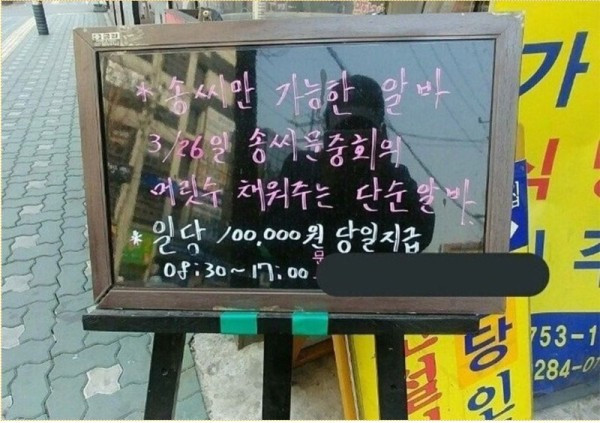 * 송씨만 가능한 알바
3/26일 송씨문중회의
머릿수 채워주는 단순알바
* 일당 100,000원 당일지급
08:30~17:00 문
가
식
당
주
당
인
753-1
284-0